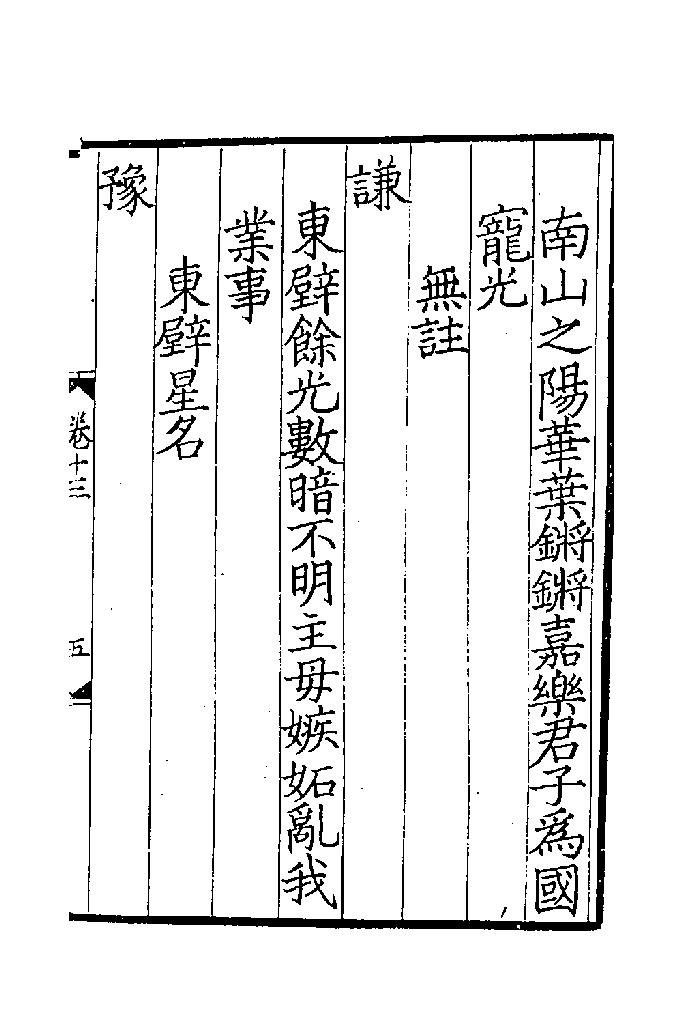 南山之陽華葉鏘鏘嘉樂君子為國
寵光
無註
謙
東壁餘光數暗不明主毋嫉妬亂我
業事
東壁星名
豫
卷十三
五